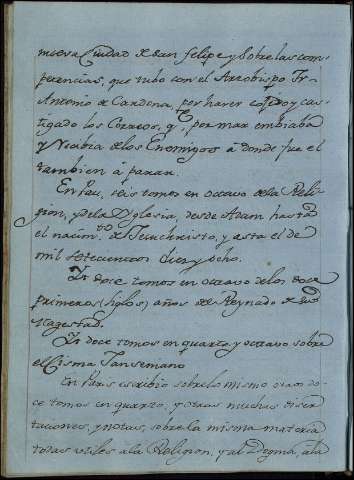 nueva Ciudad de San felipe y sobre las com-
petencias, que tubo con el Arzobispo Fr.
Antonio de Cardona, por haver cojido y cas-
tigado los Correos, q.e, por mar embiaba
y recibia de los Enemigos â donde fue el
tambien â parar.
En Pau, seis tomos en octavo de la Reli-
gion, y de la Yglesia, desde Adam hasta
el nacim.to de Jesuchristo, y esta el de
mil setecientos diez y ocho.
Yt. doce tomos en octavo de los doce
primeros (siglos) años del Reynado de su
Magestad.
Yt. doce tomos en quarto, y octavo sobre
el Cisma Janseniano
En Paris escribio sobre lo mismo otros do-
ce tomos en quarto, y otras muchas diser-
taciones, y notas, sobre la misma materia
todas utiles a la Religion, y al Dogma, a la